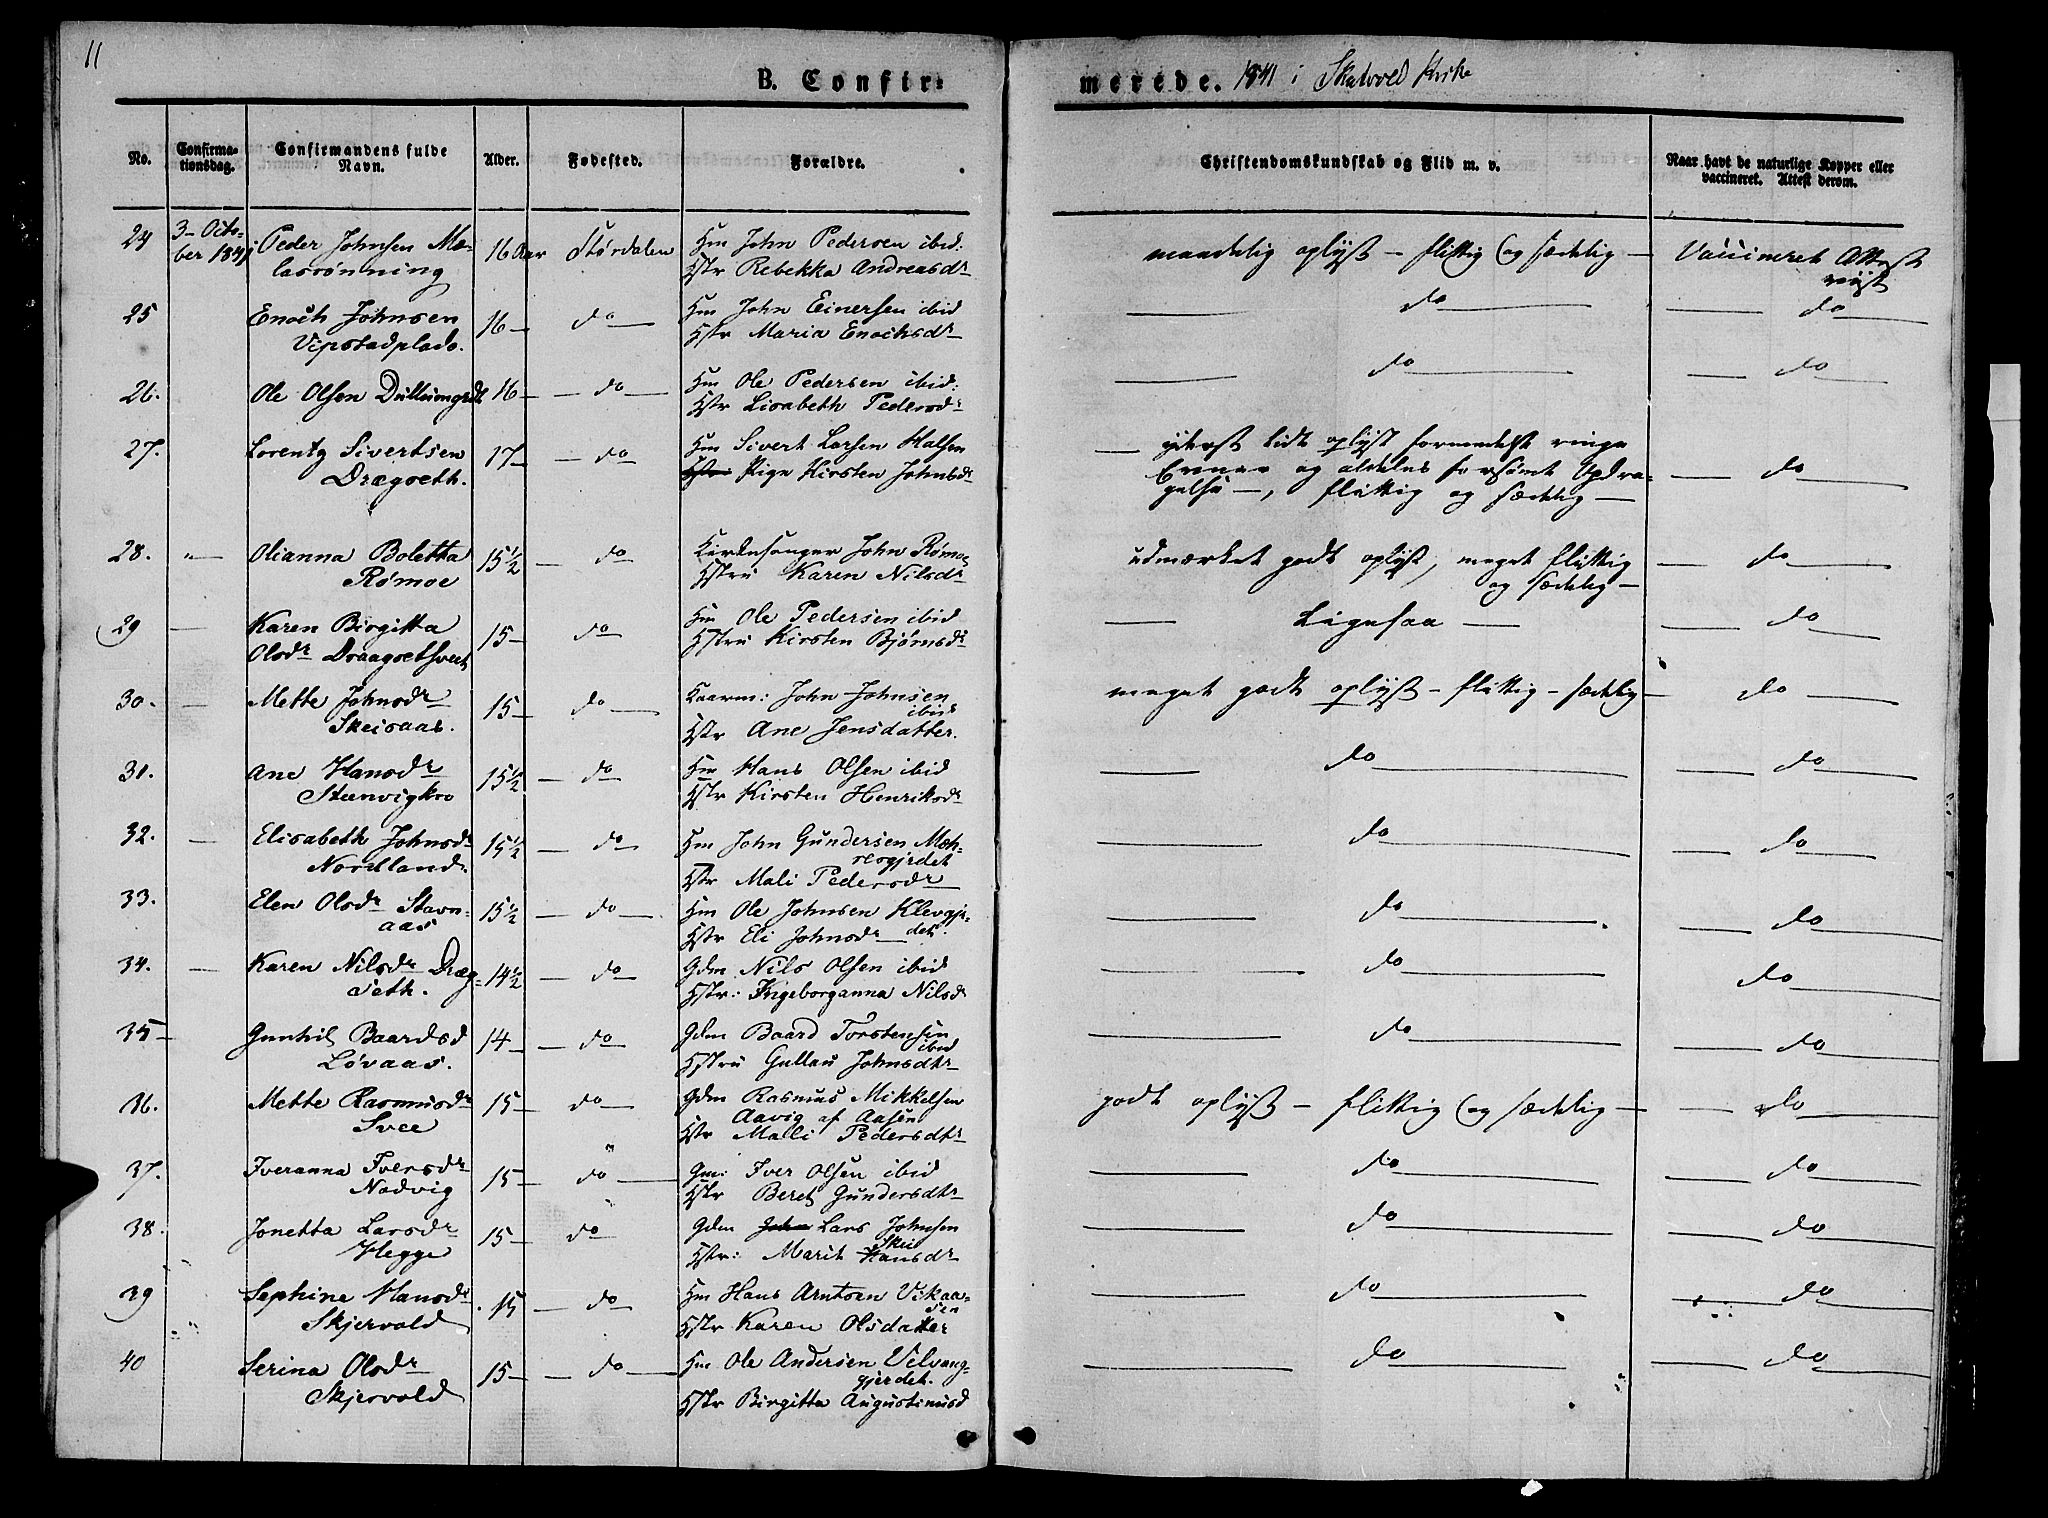 11
B. Confir-
merede. 1841 i Skatvold Kirke
No.
Confirma-
tionsdag.
Confirmandens fulde
Navn.
Alder.
Fødested.
Forældre.
Christendomskundskab og Flid m. v.
Naar havt de naturlige Kopper eller
vaccineret. Attest derom.
24 3- Octo- Peder Johnsen Mæ- 16 Aar Størdalen Hm John Pedersen ibid: maadelig oplyst – flittig og sædelig – Vaccineret Attest
ber 1841 lasrønning Hstr Rebekka Andreasdr viist
25 Enoch Johnsen 16 – do – Hm John Einersen ibid – do – – do –
Vipstadplads. Hstr Maria Enochsdr
26. Ole Olsen 16 – do – Hm Ole Pedersen ibid: – do – – do –
Hstr Lisabeth Pedersdr
27. Lorentz Sivertsen 17 – do Hm Sivert Larsen Halsen – yderst lidt oplyst formedelst ringe
Drægseth. Pige Kirsten Johnsdr Evner og aldeles forsømt Opdra- – do –
gelse –, flittig og sædelig –
28. – Olianna Boletta 15½ – do Kirkesanger John Rømoe udmærket godt oplyst, meget flittig – do –
Rømoe Hstru Karen Nilsdr og sædelig –
29 – Karen Birgitta 15 – do Hm Ole Pedersen ibid – Ligesaa – – do –
Olsdr Draagsetsveet Hstru Kirsten Bjørnsdr
30. – Mette Johnsdr 15 – do – Kaarm: John Johnsen meget godt oplyst – flittig – sædelig – do –
ibid
Skeisaas. Hstr Ane Jensdatter.
31. Ane Hansdr 15½ – do Hm Hans Olsen ibid – do – – do –
Steenvigkro Hstr Kirsten Henriksdr
32. – Elisabeth Johnsdr 15½ – do Hm John Gundersen Mæh- – do – – do –
Nordland. Hstr Mali Pedersdr
33. Elen Olsdr Stavn- 15½ – do – Hm Ole Johnsen Klevgje- – do – – do –
aas Hstr Eli Johnsdr det.
34. – Karen Nilsdr Dræg- 14½ – do Gdm Nils Olsen ibid – do – do –
seth. Hstr: Ingeborganna Nilsdr
35 – Gunhil Baardsd 14 – do Gdm Baard Torstensen – do – – do –
ibid
Løvaas. Hstru Gullau Johnsdtr
36. Mette Rasmusdr 15 – do Gdm Rasmus Mikkelsen godt oplyst – flittig og sædelig – – do –
Svee Aavig af Aasen
Hstr Malli Pedersdtr
37. Iveranna Iversdr 15 – do – Gm: Iver Olsen ibid – do – – do –
Nodvig Hstr Beret Gundersdtr
38. Jonetta Larsdr 15 – do Gdm John Lars Johnsen – do – – do –
Skei
Hegge Hstr: Marit Hansdr
39 Sephine Hansdr 15 – do Hm Hans Arntsen Vikaa- – do – – do –
sen
Skjervold Hstr Karen Olsdatter
40 Serina Olsdr 15 – do – Hm Ole Andersen Velvang- – do – – do –
gjerdet.
Skjervold Hstr Birgitta Augustinusd